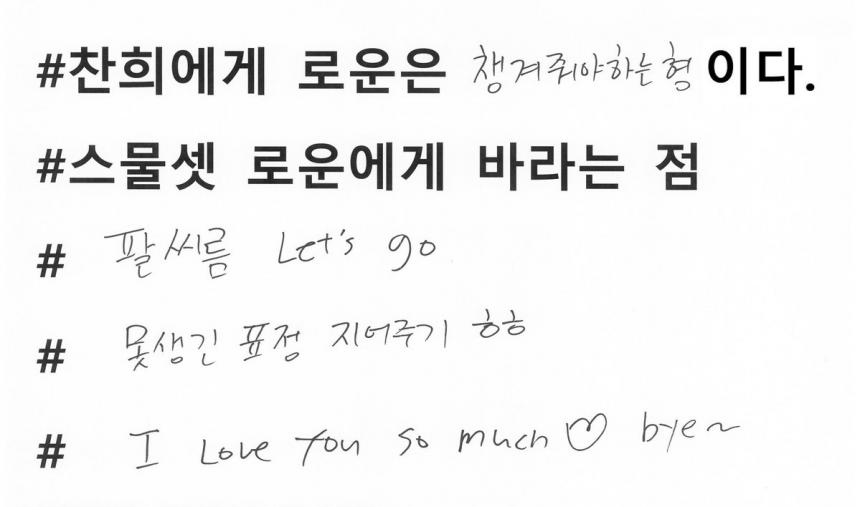 #찬희에게 로운은 챙겨줘야하는형 이다.
#스물셋 로운에게 바라는 점
# 팔씨름 Let's go
# 못생긴 표정 지어주기 ㅎㅎ
# I Love You so much♡ bye~